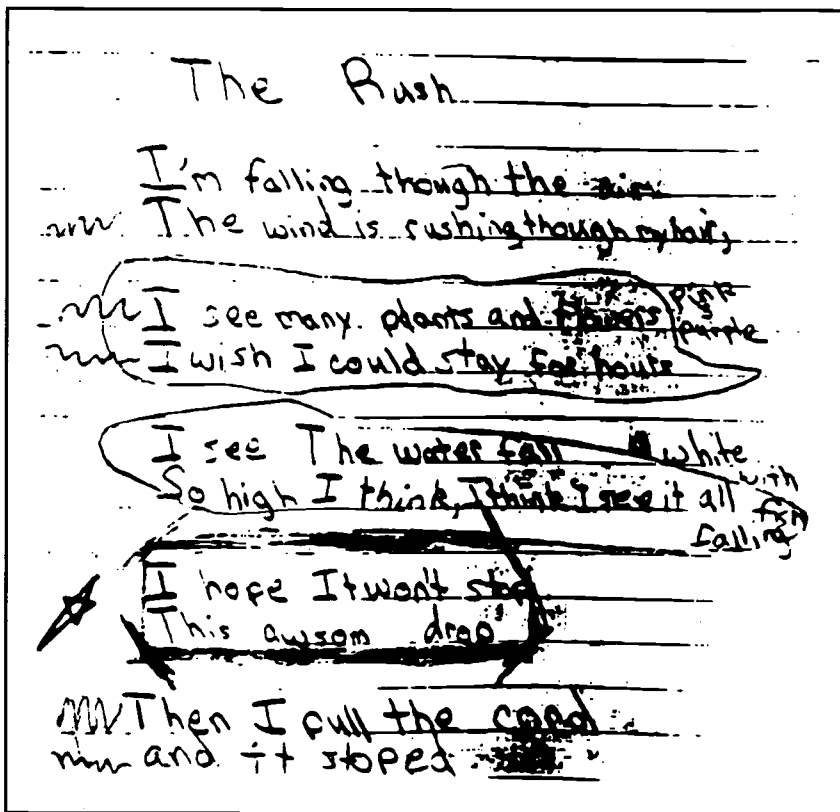 The Rush
I'm falling though the air
The wind is rushing though my hair,
I see many plants and flowers pink
purple
I wish I could stay for hours
I see The water fall white
So high I think, I think I see it all with
falling
I hope It won't stop
This awsom drop
Then I pull the cord
and it stoped